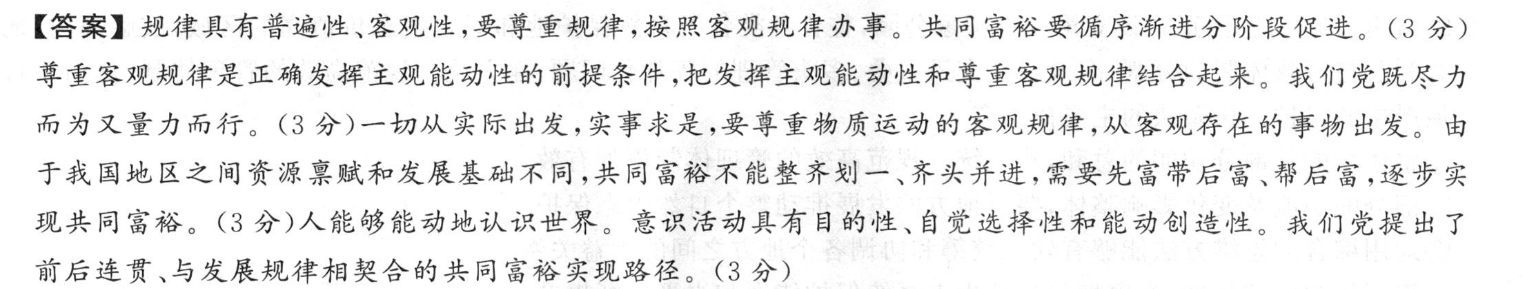 【答案】规律具有普遍性、客观性,要尊重规律,按照客观规律办事。共同富裕要循序渐进分阶段促进。(3 分)
尊重客观规律是正确发挥主观能动性的前提条件,把发挥主观能动性和尊重客观规律结合起来。我们党既尽力
而为又量力而行。(3 分)一切从实际出发,实事求是,要尊重物质运动的客观规律,从客观存在的事物出发。由
于我国地区之间资源禀赋和发展基础不同,共同富裕不能整齐划一、齐头并进,需要先富带后富、帮后富,逐步实
现共同富裕。(3 分)人能够能动地认识世界。意识活动具有目的性、自觉选择性和能动创造性。我们党提出了
前后连贯、与发展规律相契合的共同富裕实现路径。(3 分)